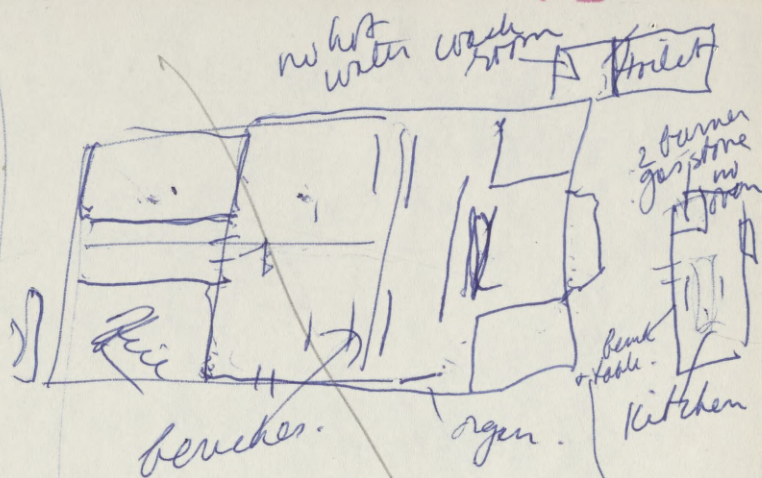 no hot
water wash
room
toilet
2 burner
gas stove
no
oven
benches.
organ.
bench
+ table.
Kitchen